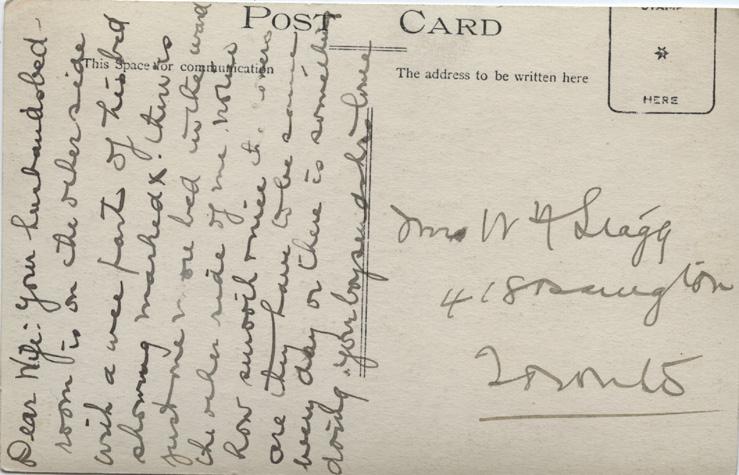 POST CARD
This Space for communication
The address to be written here
STAMP
HERE
Dear Wife: Your husbands bed-
room is on the other side
with a wee part of his bed
showing marked X. there is
just one more bed in the ward
the other side of me. note
how smooth & nice the covers
are they have to be same
every day or there is something
doing. your
Mrs W H Stagg
418
Toronto